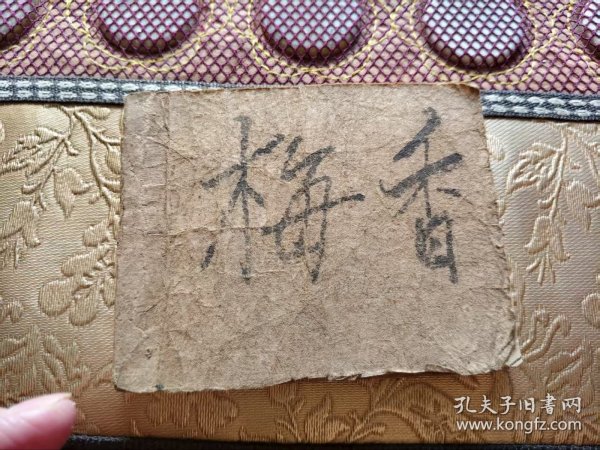 梅香
孔夫子旧書网
www.kongfz.com